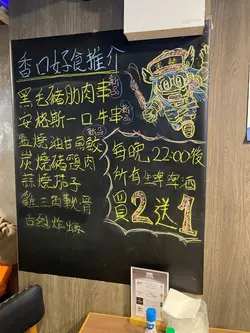 香口好食推介
黑毛豬肋肉串 新品
安格斯一口牛串 新品
鹽燒油甘魚鮫 新品
炭燒豬頸肉
蒜燒茄子
雞三角軟骨
吉列炸蠔
每晚 22:00後
所有生啤啤酒
買2送1